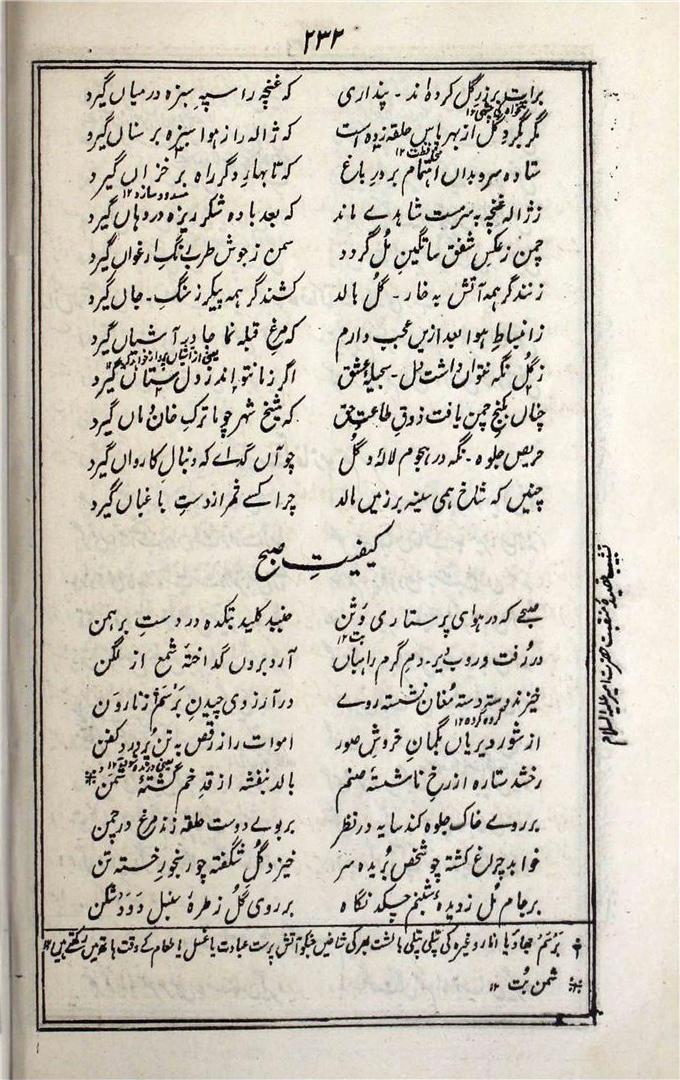 ۲۳۲
برات بر زر گل کرده اند - پنداری که غنچه را سپهِ سبزه درمیاں گیرد
مگر بگردِ گل از بهر پاس حلقه زده است که ژاله را ز هوا سبزه بر سناں گیرد
ستاده سرو بداں اهتمام بر درِ باغ که تا بهارِ دگر راه بر خزاں گیرد
ز ژاله غنچه به سرمست شاهدے ماند که بعد باده شکر ریزه در دهاں گیرد
چمن ز عکسِ شفق ساتگینِ مُل گردد سمن ز جوشِ طرب رنگِ ارغواں گیرد
زنند گر همه آتش به خار - گل بالد کشند گر همه پیکر ز سنگ - جاں گیرد
ز انبساطِ هوا بعد ازیں عجب دارم که مرغِ قبله نما جا در آشیاں گیرد
ز گل نگه نتواں داشت دل - بحیلۀ عشق اگر ز ما نتواند ز دل ستاں گیرد
چناں بکنجِ چمن یافت ذوقِ طاعتِ حق که شیخِ شهر چو ما ترکِ خان و ماں گیرد
حریصِ جلوه - نگه در هجومِ لاله و گل چو آں گداے که دنبالِ کارواں گیرد
چنیں که شاخ همی سینه بر زمیں مالد چرا کسے ثمر از دستِ باغباں گیرد
کیفیتِ صبح
صبحے که در هوای پرستاریِ وثن جنبد کلید بتکده در دستِ برهمن
در رُفت و روبِ دیر - دمِ گرمِ راهباں آرد بروں گداختۀ شمع از لگن
خیزند دسته دسته مُغانِ نشسته روے در آرزوی چیدنِ بَرسَم ز نارون
از شورِ دیریاں بگمانِ خروشِ صور اموات را ز رقص به تن بَردَرد کفن
رخشد ستاره از رخِ ناشستۀ صنم بالد بنفشه از قدِ خم گشتۀ شمن
بر روے خاک جلوه کند سایه در نظر بر بوے دوست حلقه زند مرغ در چمن
خوابد چراغِ کشته چو شخصِ بُریده سر خیزد گلِ شگفته چو رنجورِ خسته تن
بر جامِ مُل ز دیده شبنم چکد نگاه بر روی گل ز طرۀ سنبل دود شکن
تشبیب قصیدۀ منقبت حضرت امیر علیہ السلام
بَرسَم جھاؤ یا انار وغیرہ کی پتلی پتلی بالشت بھر کی شاخیں جنکو آتش پرست عبادت یا غسل یا طعام کے وقت ہاتھ میں رکھتے ہیں ۱۲
شمن بُت ۱۲